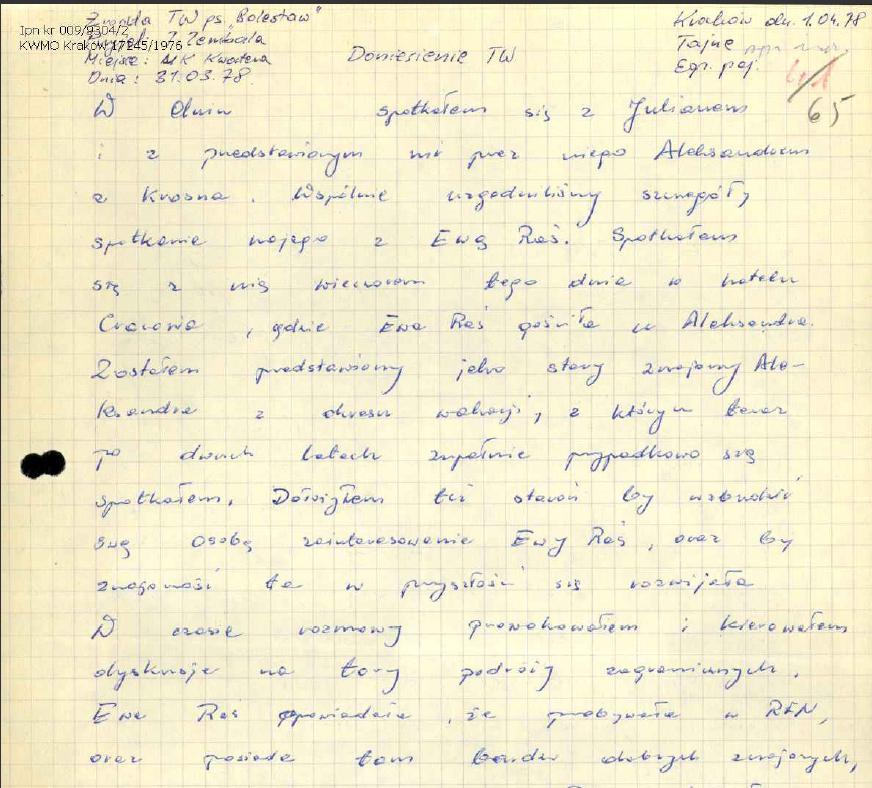 Źródła TW ps. "Bolesław"
Ipn kr 009/9304/2
KWMO Kraków 17245/1976
Miejsce: MK Kwatera
Dnia: 31.03.78.
Doniesienie TW
Kraków dn. 1.04.78
Tajne
Egz. poj.
65
W dniu spotkałem się z Julianem
i z przedstawionym mi przez niego Aleksandrem
z Krosna. Wspólnie uzgodniliśmy szczegóły
spotkania mojego z Ewą Raś. Spotkałem
się z nią wieczorem tego dnia w hotelu
Cracovia, gdzie Ewa Raś gościła u Aleksandra.
Zostałem przedstawiony jako stary znajomy Ale-
ksandra z okresu wakacji, z którym teraz
po dwuch latach zupełnie przypadkowo się
spotkałem. Dołożyłem też starań by wzbudzić
swą osobą zainteresowanie Ewy Raś, oraz by
znajomość ta w przyszłości się rozwijała
W czasie rozmowy prowokowałem i kierowałem
dyskusję na tory podróży zagranicznych.
Ewa Raś opowiadała, że przebywała w RFN,
oraz posiada tam bardzo dobrych znajomych,